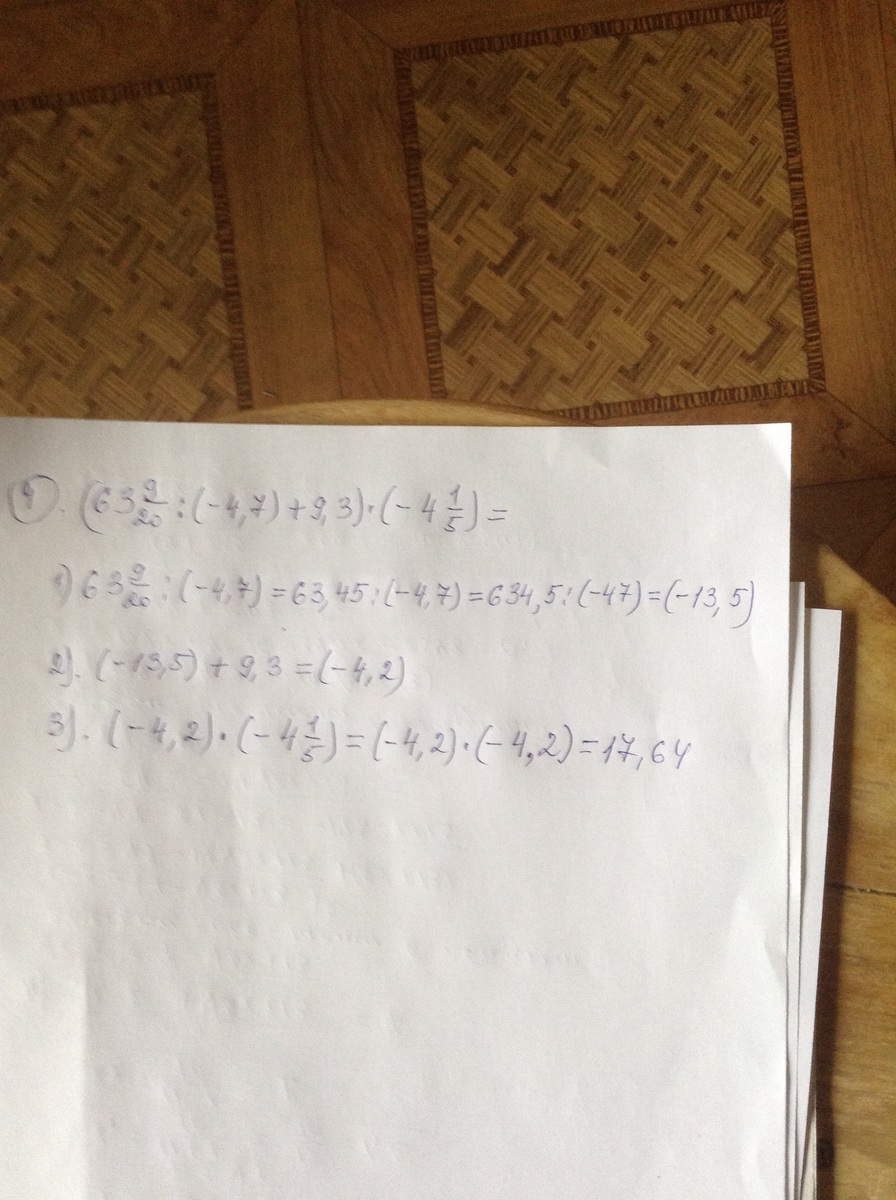 4. (63 9/20 : (-4,7) + 9,3) · (-4 1/5) =
1) 63 9/20 : (-4,7) = 63,45 : (-4,7) = 634,5 : (-47) = (-13,5)
2). (-13,5) + 9,3 = (-4,2)
3). (-4,2) · (-4 1/5) = (-4,2) · (-4,2) = 17,64